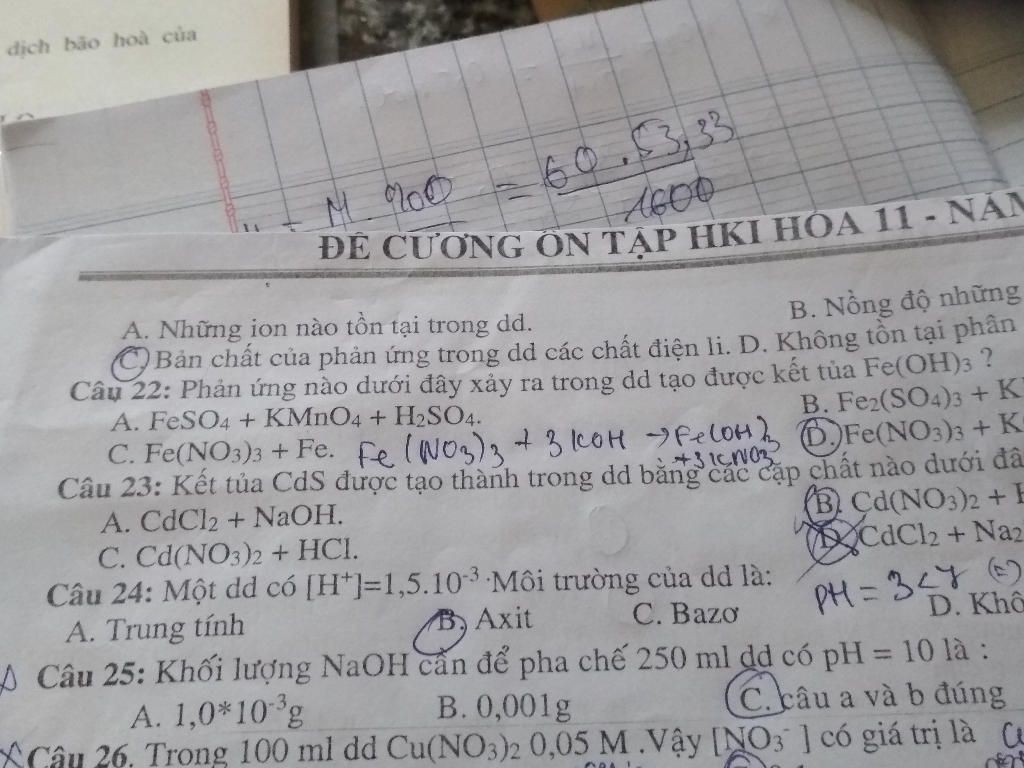 dịch bão hoà của
M. 900 = 60 . 53,33
1600
ĐỀ CƯƠNG ÔN TẬP HKI HÓA 11 - NĂM
A. Những ion nào tồn tại trong dd. B. Nồng độ những
C. Bản chất của phản ứng trong dd các chất điện li. D. Không tồn tại phân
Câu 22: Phản ứng nào dưới đây xảy ra trong dd tạo được kết tủa Fe(OH)3 ?
A. FeSO4 + KMnO4 + H2SO4. B. Fe2(SO4)3 + K
C. Fe(NO3)3 + Fe. Fe(NO3)3 + 3KOH → Fe(OH)3 D. Fe(NO3)3 + K
+3KNO3
Câu 23: Kết tủa CdS được tạo thành trong dd bằng các cặp chất nào dưới đâ
A. CdCl2 + NaOH. B. Cd(NO3)2 +
C. Cd(NO3)2 + HCl. D. CdCl2 + Na2
Câu 24: Một dd có [H+]=1,5.10-3 .Môi trường của dd là: pH = 3 < 7
A. Trung tính B. Axit C. Bazơ D. Khô
Câu 25: Khối lượng NaOH cần để pha chế 250 ml dd có pH = 10 là :
A. 1,0*10-3g B. 0,001g C. câu a và b đúng
Câu 26. Trong 100 ml dd Cu(NO3)2 0,05 M .Vậy [NO3- ] có giá trị là